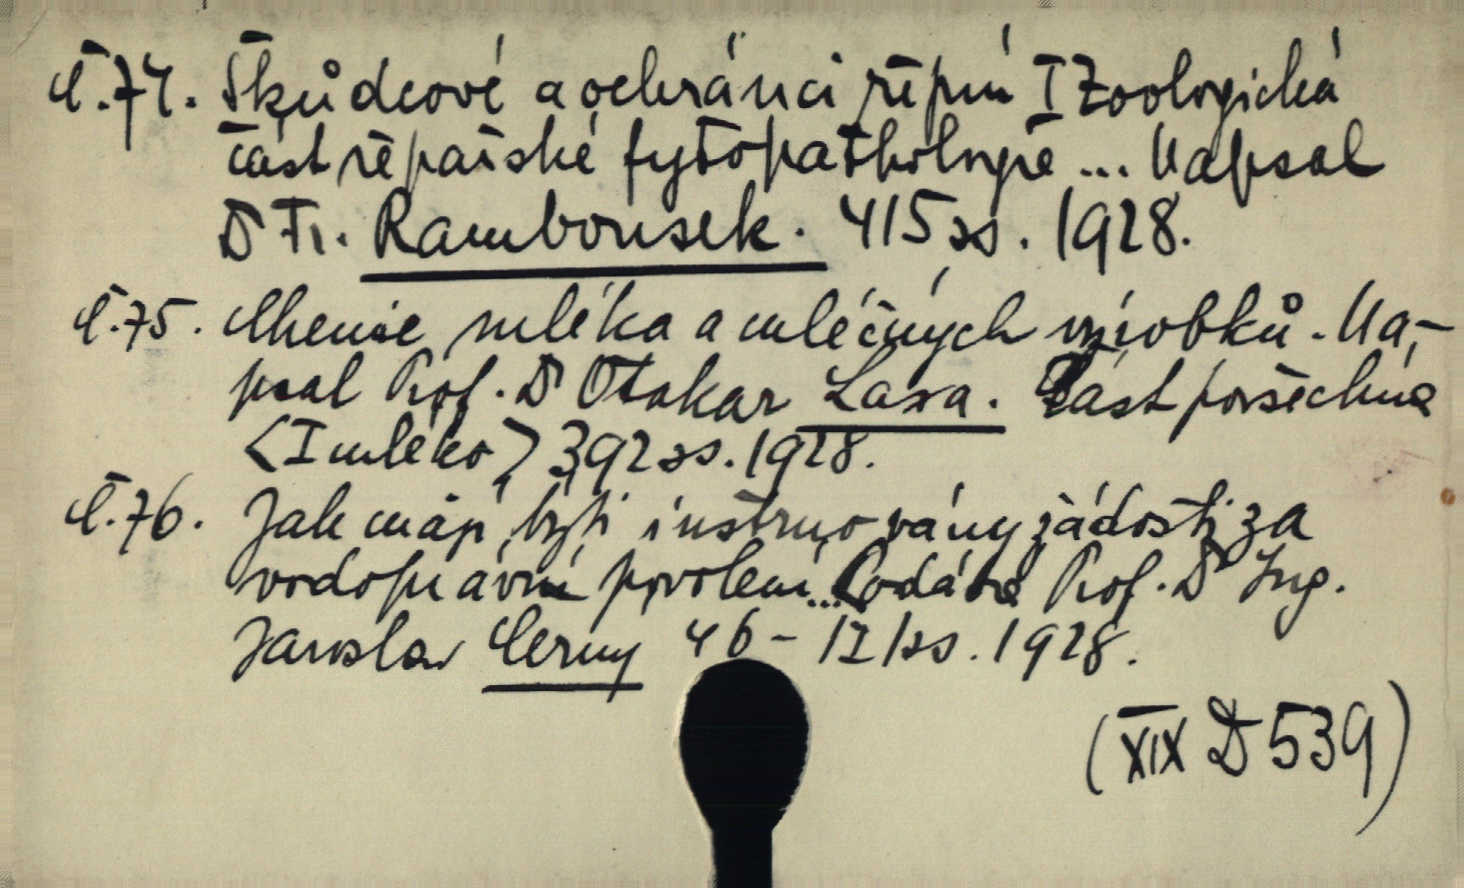 Č.74. Škůdcové a ochránci řepní I Zoologická
část řepařské fytopathologie ... Napsal
Dr Fr. Rambousek. 415 ss. 1928.
Č.75. Chemie mléka a mléčných výrobků. Na-
psal Prof. Dr Otakar Laxa. Část povšechná
<I mléko> 392 ss. 1928.
Č.76. Jak mají býti instruovány žádosti za
vodoprávní povolení... Podává Prof. Dr Ing.
Jaroslav Černý 46 - /I/ ss. 1928.
(XIX D 539)